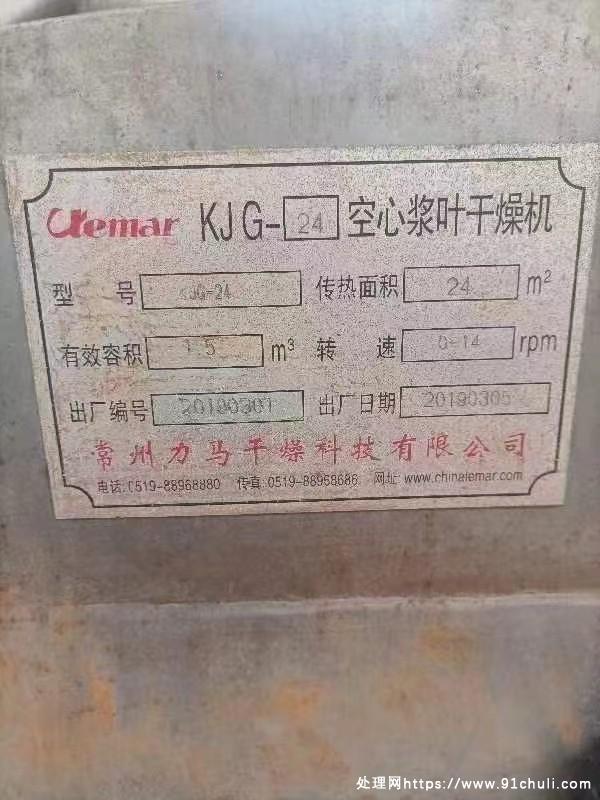 Lemar KJG-24 空心桨叶干燥机
型 号 KJG-24 传热面积 24 m²
有效容积 1.5 m³ 转 速 0-14 rpm
出厂编号 20190301 出厂日期 20190305
常州力马干燥科技有限公司
电话:0519-88968880 传真:0519-88958686 网址:www.chinalemar.com
处理网https://www.91chuli.com